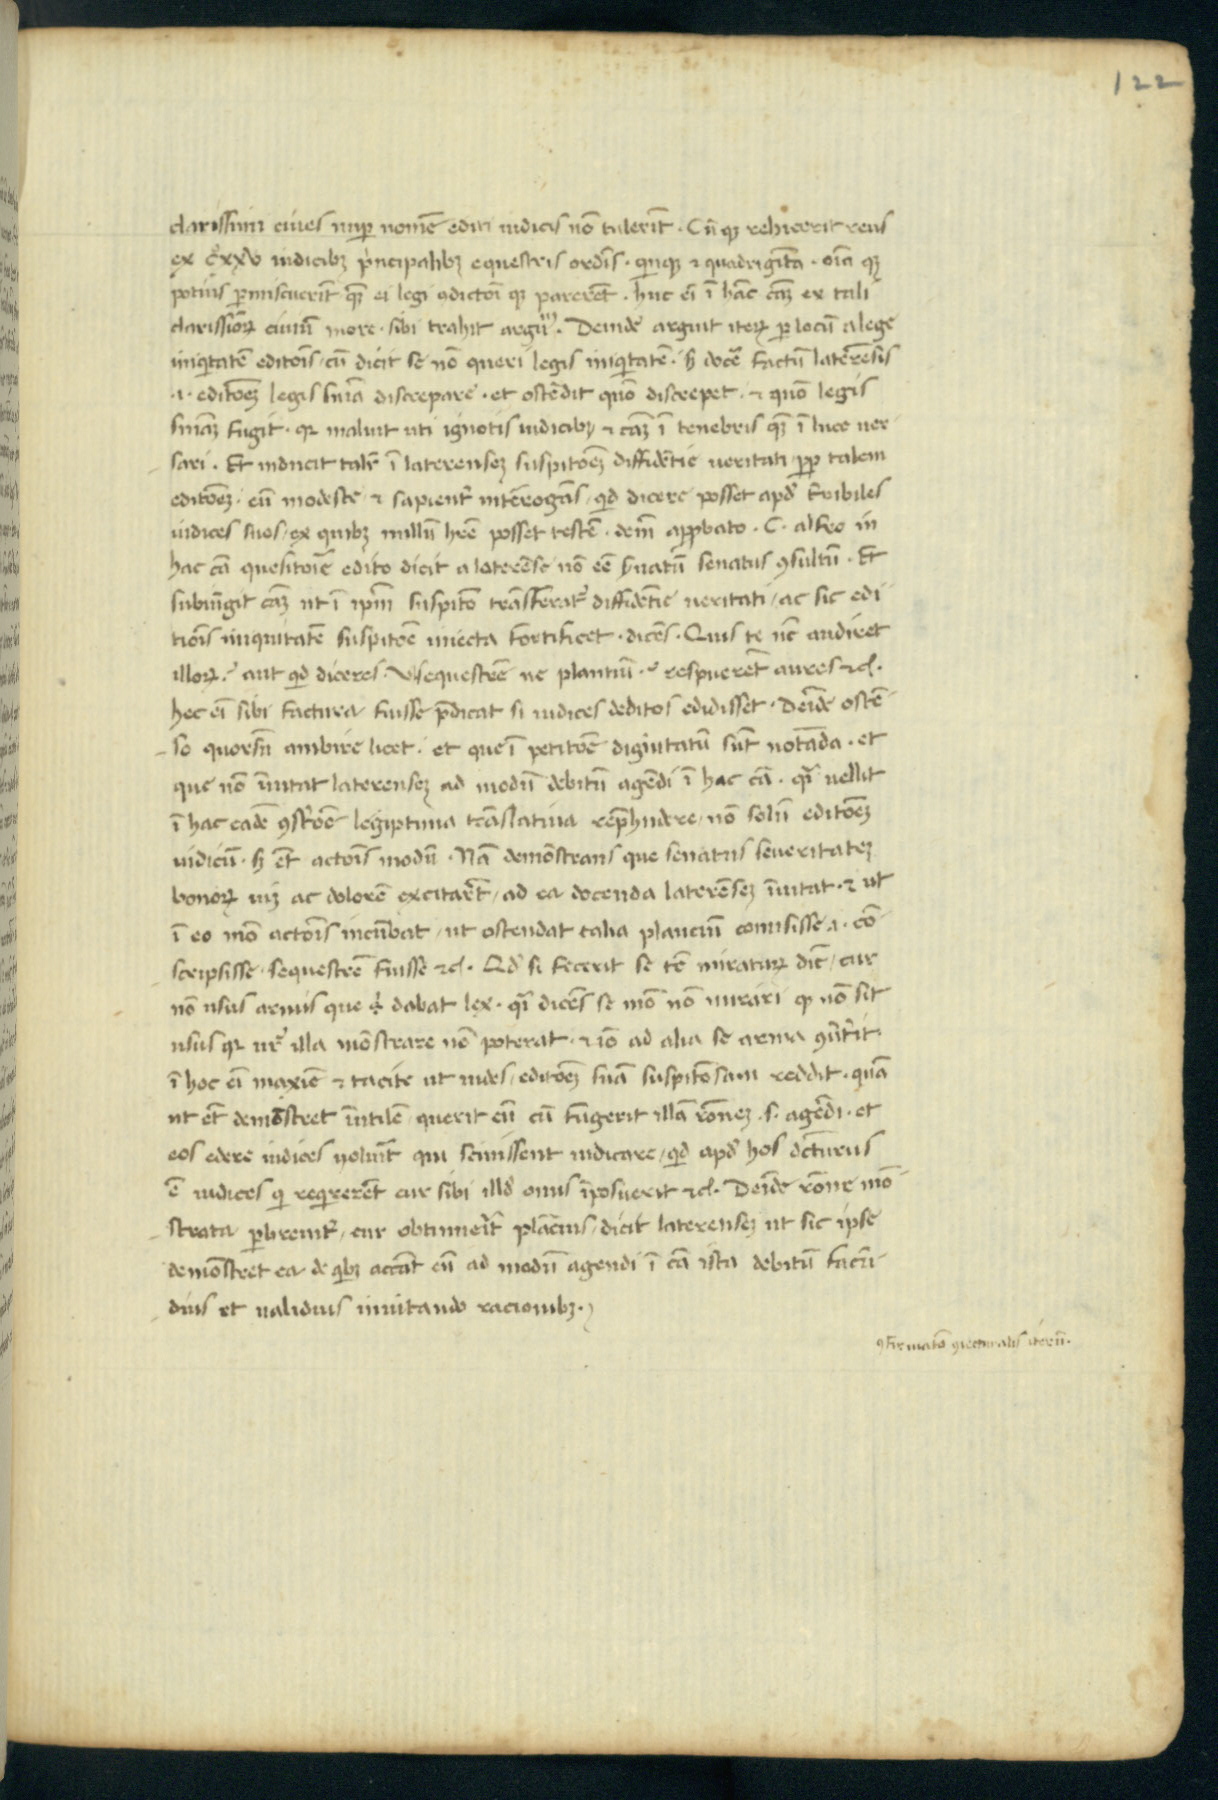 122
clarissimi ciues nup nomē editi iudicis nō tulerīt . Cū qꝫ reħicerit reus
ex cxxv iudicibꝫ p̄ncipalibꝫ equestris ordīs . qinqꝫ ⁊ quadrigīta . oīa qꝫ
potius pmiscuerīt qꝫ ei legi ꝯdictoī qꝫ parerēt . huc eī ī hāc cāꝫ ex tali
clarissioꝝ ciuiū more . sibi trahit argūᵐ . Deinde arguit iteꝝ p locū a lege
iniqitatē editoīs . cū dicit se nō queri legis iniqitatē . ꝫ docē factū laterēsis
.i. editoēꝫ legis sniā discrepare . et ostēdit quō discrepet . ⁊ quō legis
sniāꝫ fugit . qꝛ maluit uti ignotis iudicibꝫ ⁊ cāꝫ ī tenebris qꝫ ī luce uer
sari . Et inducit talr̄ ī laterensez suspitoēꝫ diffidētie ueritati pp talem
editoēꝫ . eū modeste ⁊ sapient̄ interogās . qd dicere posset apd̄ tribiles
iudices suos . ex quibꝫ nullū hr̄e posset testē . demū appbato . C . alfio in
hac cā quesitoīe edito dicit a laterēse nō eē s̄uatū senatus ꝯsultū . Et
subiūgit cāꝫ ut ī ip̄m suspito trāsferat̄ diffidētie ueritati . ac sic edi
tiois iniquitatē suspitoē iniecta fortificet . dicēs . Quis te nc̄ audiret
illoꝝ . aut qd diceres . sequestrē ne plantiū . respuerēt aures ⁊c̄ .
hec eī sibi factura fuisse p̄dicat si iudices deditos edidisset . Deīde ostē
so quorsū ambire licet . et que ī petitoē digītatū sūt notāda . et
que nō īuitat laterensez ad modū debitū agēdi ī hac cā . qī uellit
ī hac eadē ꝯst̄oē legiptima translatiua rep̄hndere . nō solū editoēꝫ
iudicū . ꝫ et̄ actoīs modū . Nā demōstrans que senatus seueritatez
bonoꝝ uiꝫ ac dolorē excitarēt . ad ea docenda laterēsez īuitat . ⁊ ut
ī eo mō actoīs incūbat . ut ostendat talia planciū comisisse .i. cō
scripsisse . sequestrē fuisse ⁊c̄ . Qd̄ si fecerit se tē miratuꝝ dic̄ . cur
nō usus armis que ei dabat lex . qī dicēs se mō nō mirari qꝫ nō sit
usus qꝛ ur̄ illa mōstrare nō poterat . ⁊ iō ad alia se arma ꝯūtīt
ī hoc eī maxiē ⁊ tacite ut uides . editoēꝫ suā suspitosam reddit . quā
ut et̄ demōstret īutilē . querit eū cū fugerit illā roēꝫ .s. agēdi . et
eos edere iudices noluīt qui sciuissent iudicare . qd apd̄ hos dc̄turus
ē iudices qi reqirerēt cur sibi illd̄ onus īposuerit ⁊c̄ . Deīde roēne mō
strata pbreuit̄ . cur obtinueīt plācius . dicit laterensez ut sic ipse
demōstret ea de qibꝫ accāt eū ad modū agendi ī cā ista debitū facū
dius et ualidius inuitando racionibꝫ .
ꝯfirmato ꝯiecturalis iterū .